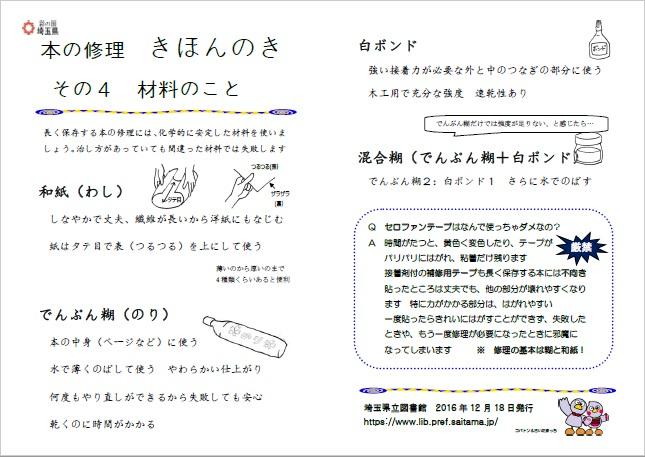 彩の国
埼玉県
本の修理 きほんのき
その４ 材料のこと
長く保存する本の修理には、化学的に安定した材料を使いま
しょう。治し方があっていても間違った材料では失敗します
和紙（わし）
タテ目
つるつる(表)
ザラザラ
(裏)
しなやかで丈夫、繊維が長いから洋紙にもなじむ
紙はタテ目で表（つるつる）を上にして使う
薄いのから厚いのまで
４種類くらいあると便利
でんぷん糊（のり）
本の中身（ページなど）に使う
水で薄くのばして使う やわらかい仕上がり
何度もやり直しができるから失敗しても安心
乾くのに時間がかかる
白ボンド
ボンド
強い接着力が必要な外と中のつなぎの部分に使う
木工用で充分な強度 速乾性あり
でんぷん糊だけでは強度が足りない、と感じたら…
混合糊（でんぷん糊＋白ボンド）
でんぷん糊２：白ボンド１ さらに水でのばす
Ｑ セロファンテープはなんで使っちゃダメなの？
Ａ 時間がたつと、黄色く変色したり、テープが
パリパリにはがれ、粘着だけ残ります
厳禁
接着剤付の補修用テープも長く保存する本には不向き
貼ったところは丈夫でも、他の部分が壊れやすくなり
ます 特に力がかかる部分は、はがれやすい
一度貼ったらきれいにはがすことができず、失敗した
ときや、もう一度修理が必要になったときに邪魔に
なってしまいます ※ 修理の基本は糊と和紙！
埼玉県立図書館 2016年12月18日発行
https://www.lib.pref.saitama.jp/
コバトン＆さいたまっち